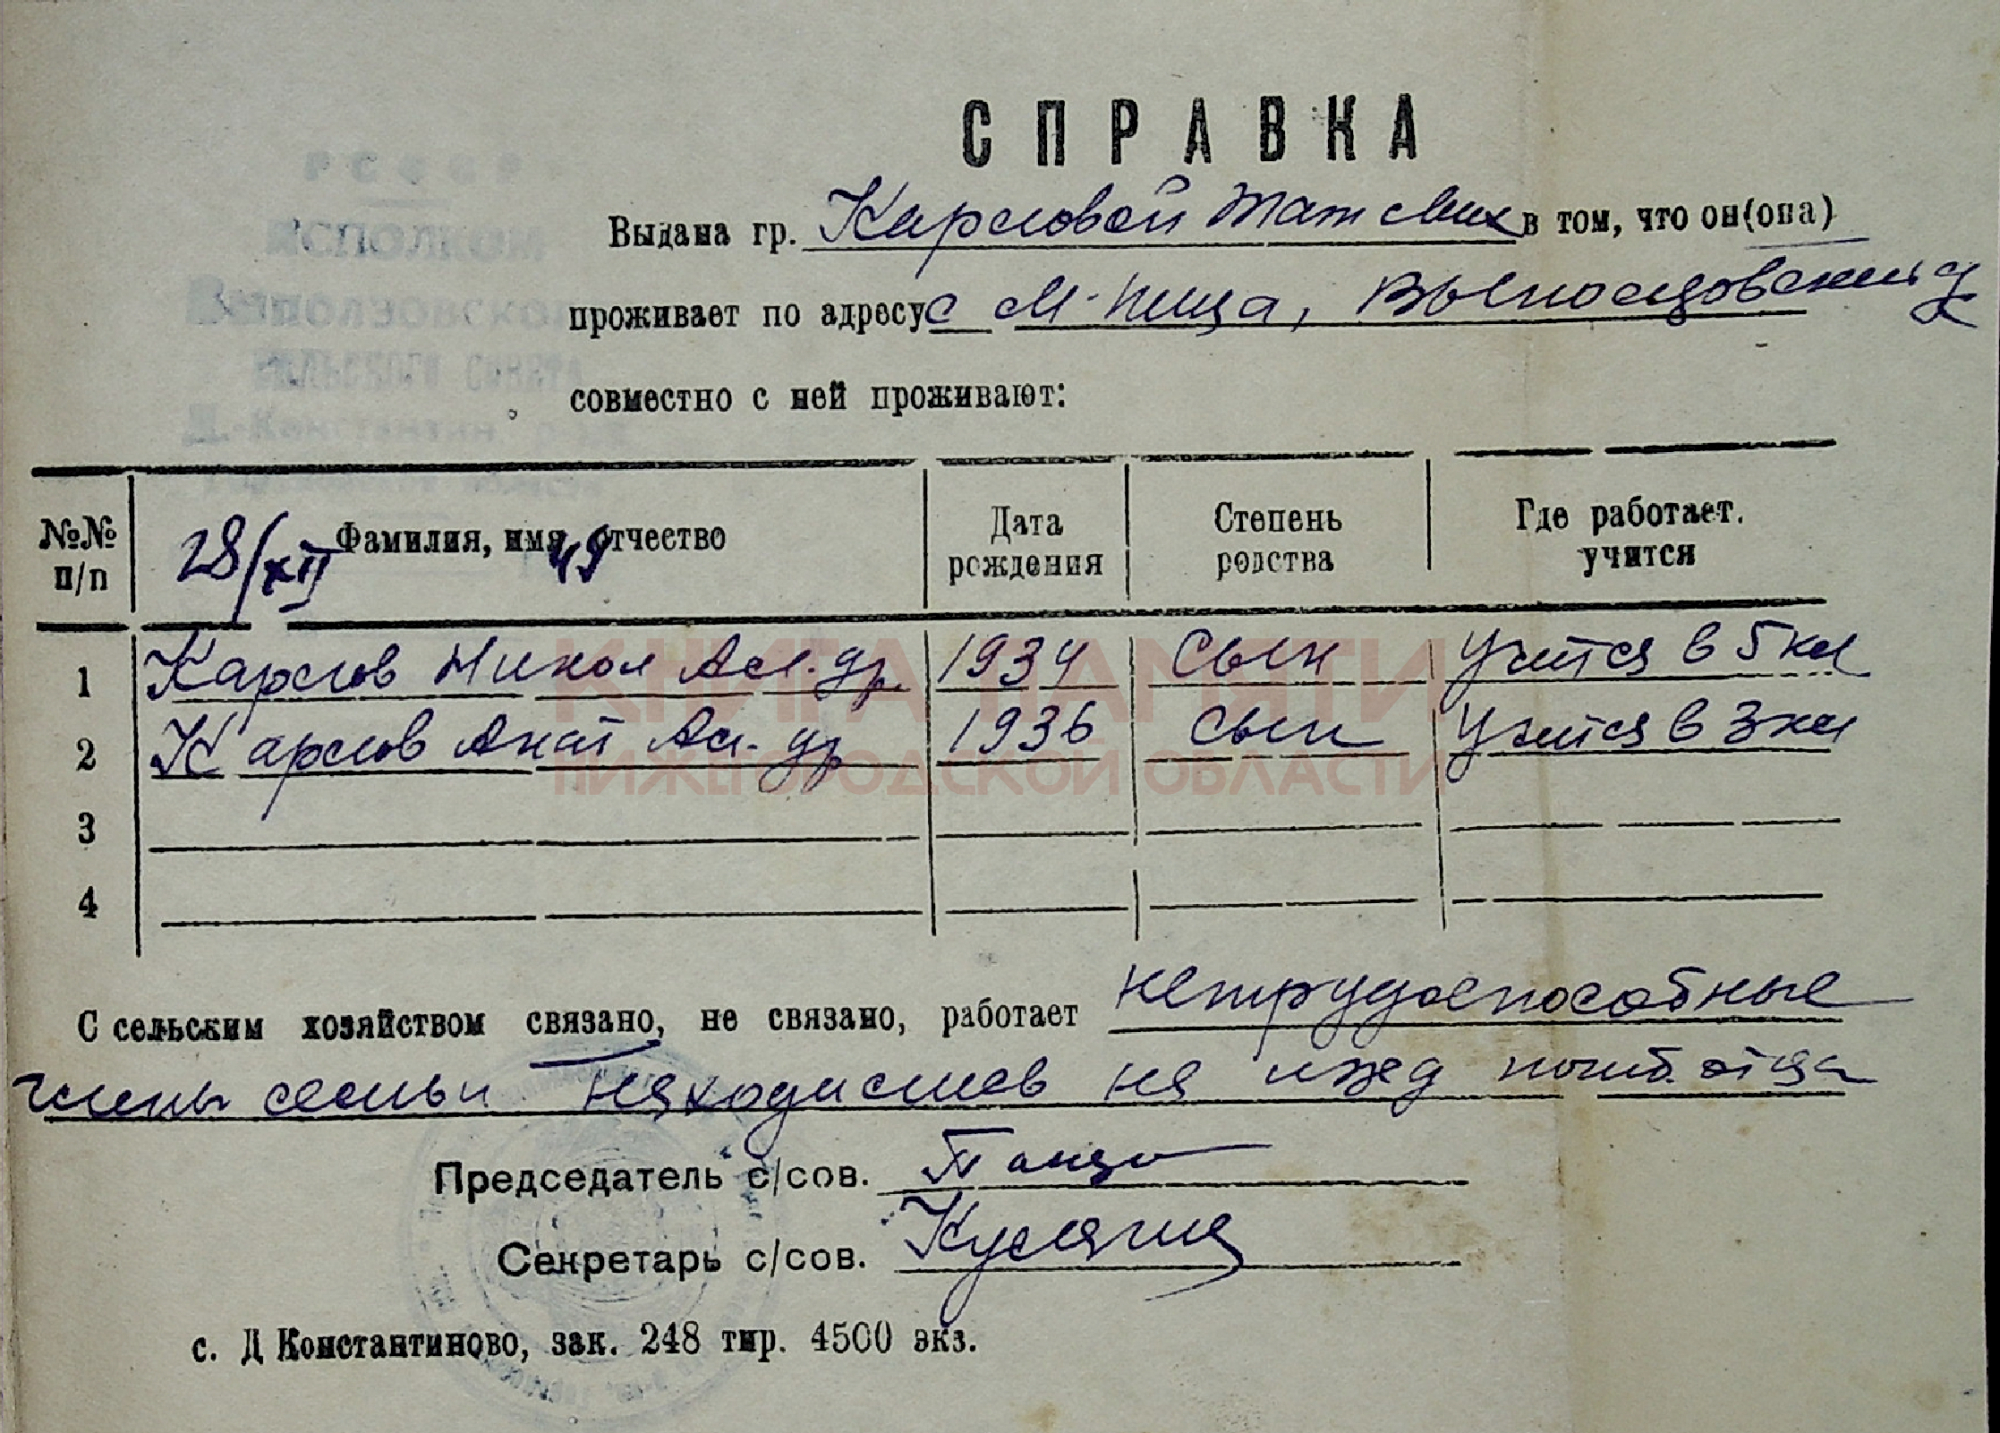 РСФСР
ИСПОЛКОМ
СЕЛЬСКОГО СОВЕТА
СПРАВКА
Выдана гр. Карсловой Тат Мих в том, что он(она)
проживает по адресу с М-Пица,
совместно с ней проживают:
№№ п/п Фамилия, имя, отчество Дата рождения Степень родства Где работает. учится
28/XII 49
1 Карслов Никол Ал-др 1934 Сын Учится в 5 кл
2 Карслов Анат Ал-др 1936 Сын Учится в 3 кл
3
4
С сельским хозяйством связано, не связано, работает нетрудоспособные
члены семьи находились на ижд погиб. отца
Председатель с/сов.
Секретарь с/сов.
с. Д Константиново, зак. 248 тир. 4500 экз.
КНИГА ПАМЯТИ
НИЖЕГОРОДСКОЙ ОБЛАСТИ